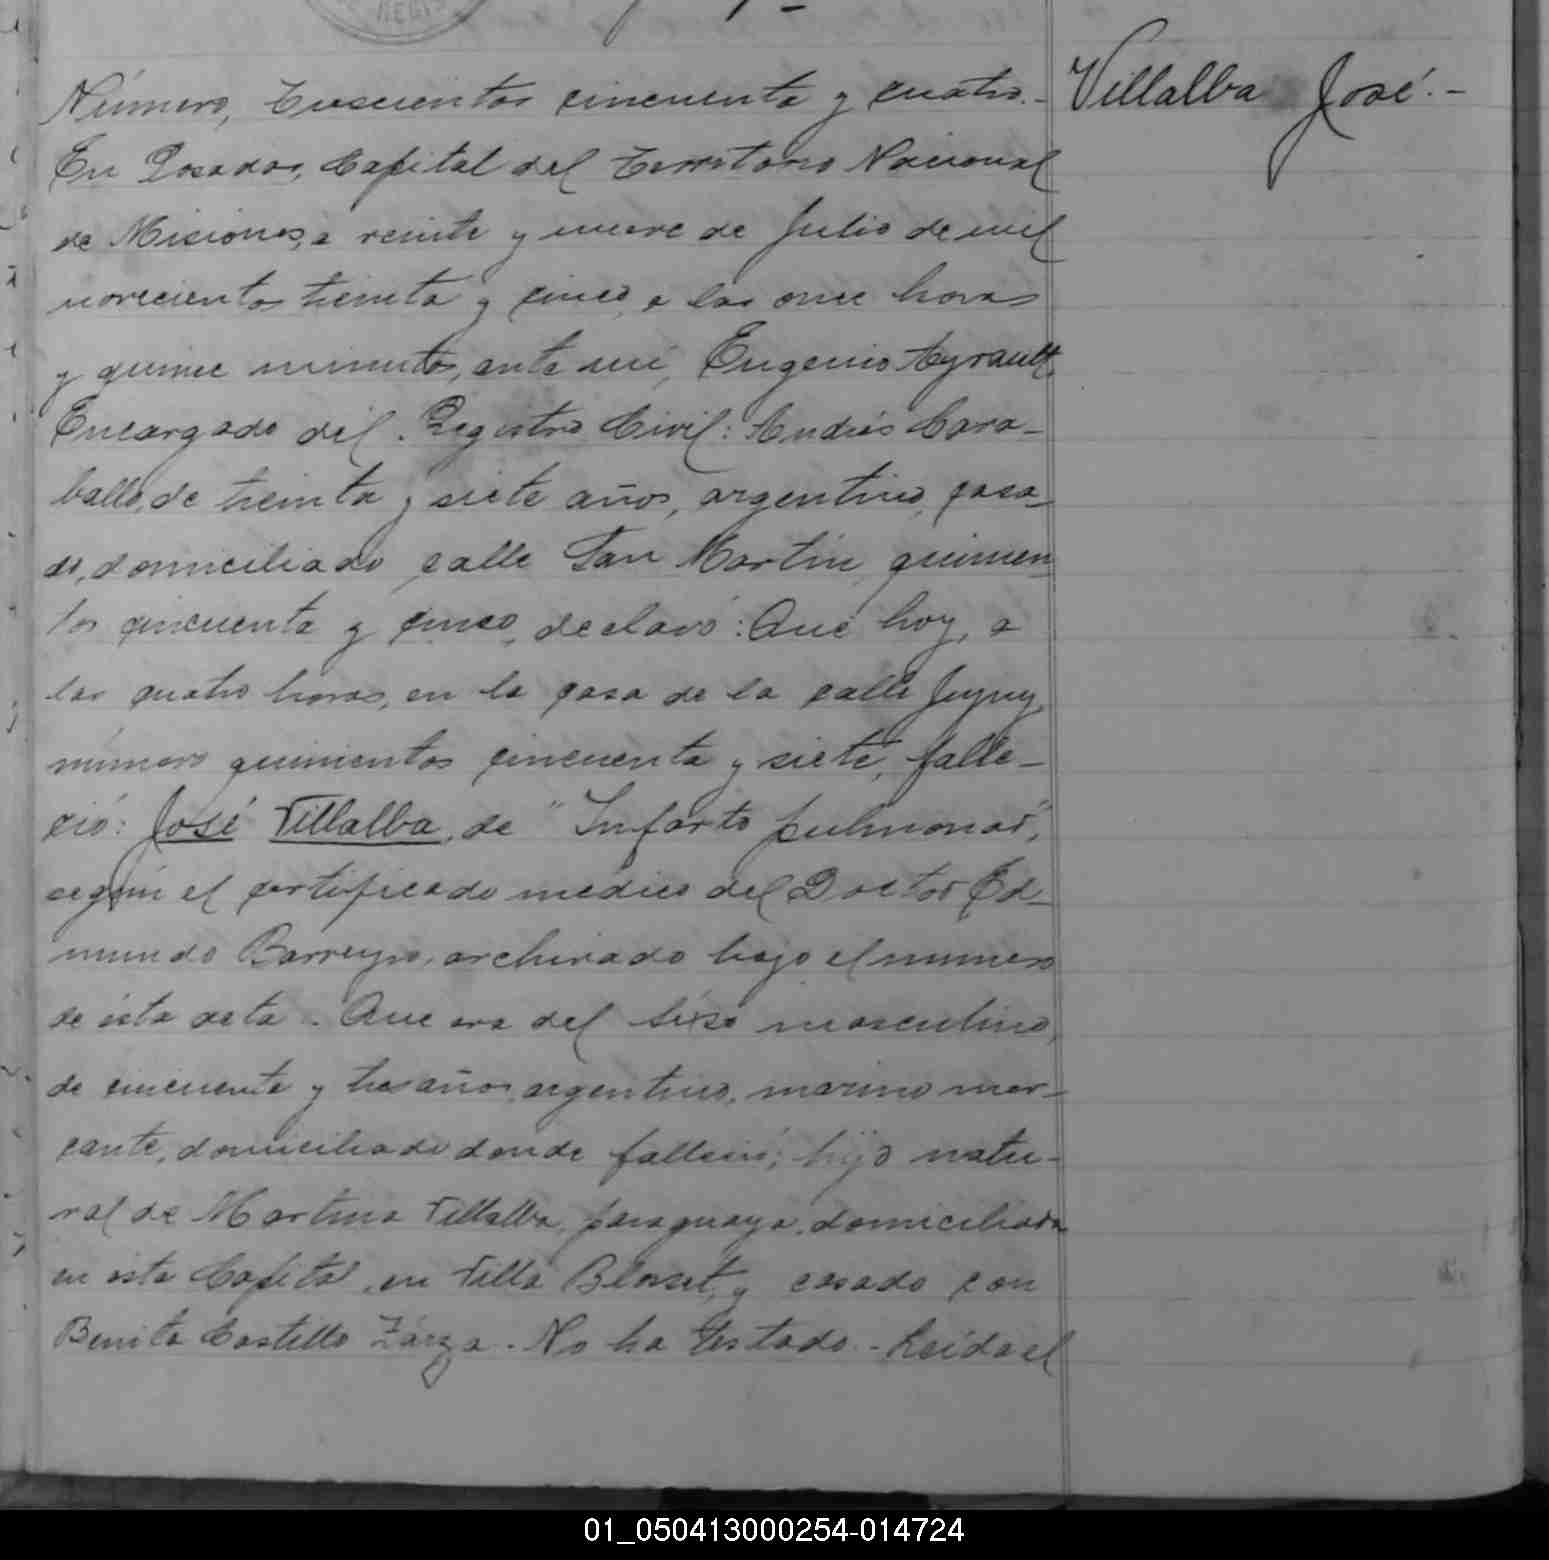 REGIS
Villalba José.-
Número, Trescientos cincuenta y cuatro.-
En Posadas, Capital del Territorio Nacional
de Misiones, a veinte y nueve de Julio de mil
novecientos treinta y cinco, a las once horas
y quince minutos, ante mí, Eugenio Ayrault,
Encargado del Registro Civil: Andrés Cara-
ballo, de treinta y siete años, argentino, casa-
do, domiciliado calle San Martín quinien-
tos cincuenta y cinco, declaró: Que hoy, a
las cuatro horas, en la casa de la calle Jujuy,
número quinientos cincuenta y siete, falle-
ció: José Villalba, de "Infarto pulmonar",
según el certificado médico del Doctor Ed-
mundo Barreyro, archivado bajo el número
de ésta acta. Que era del sexo masculino,
de cincuenta y tres años, argentino, marino mer-
cante, domiciliado donde falleció; hijo natu-
ral de Martina Villalba, paraguaya, domiciliada
en esta Capital, en Villa Blosset, y casado con
Benita Castillo Zarza. No ha testado.- Leída el
01_050413000254-014724